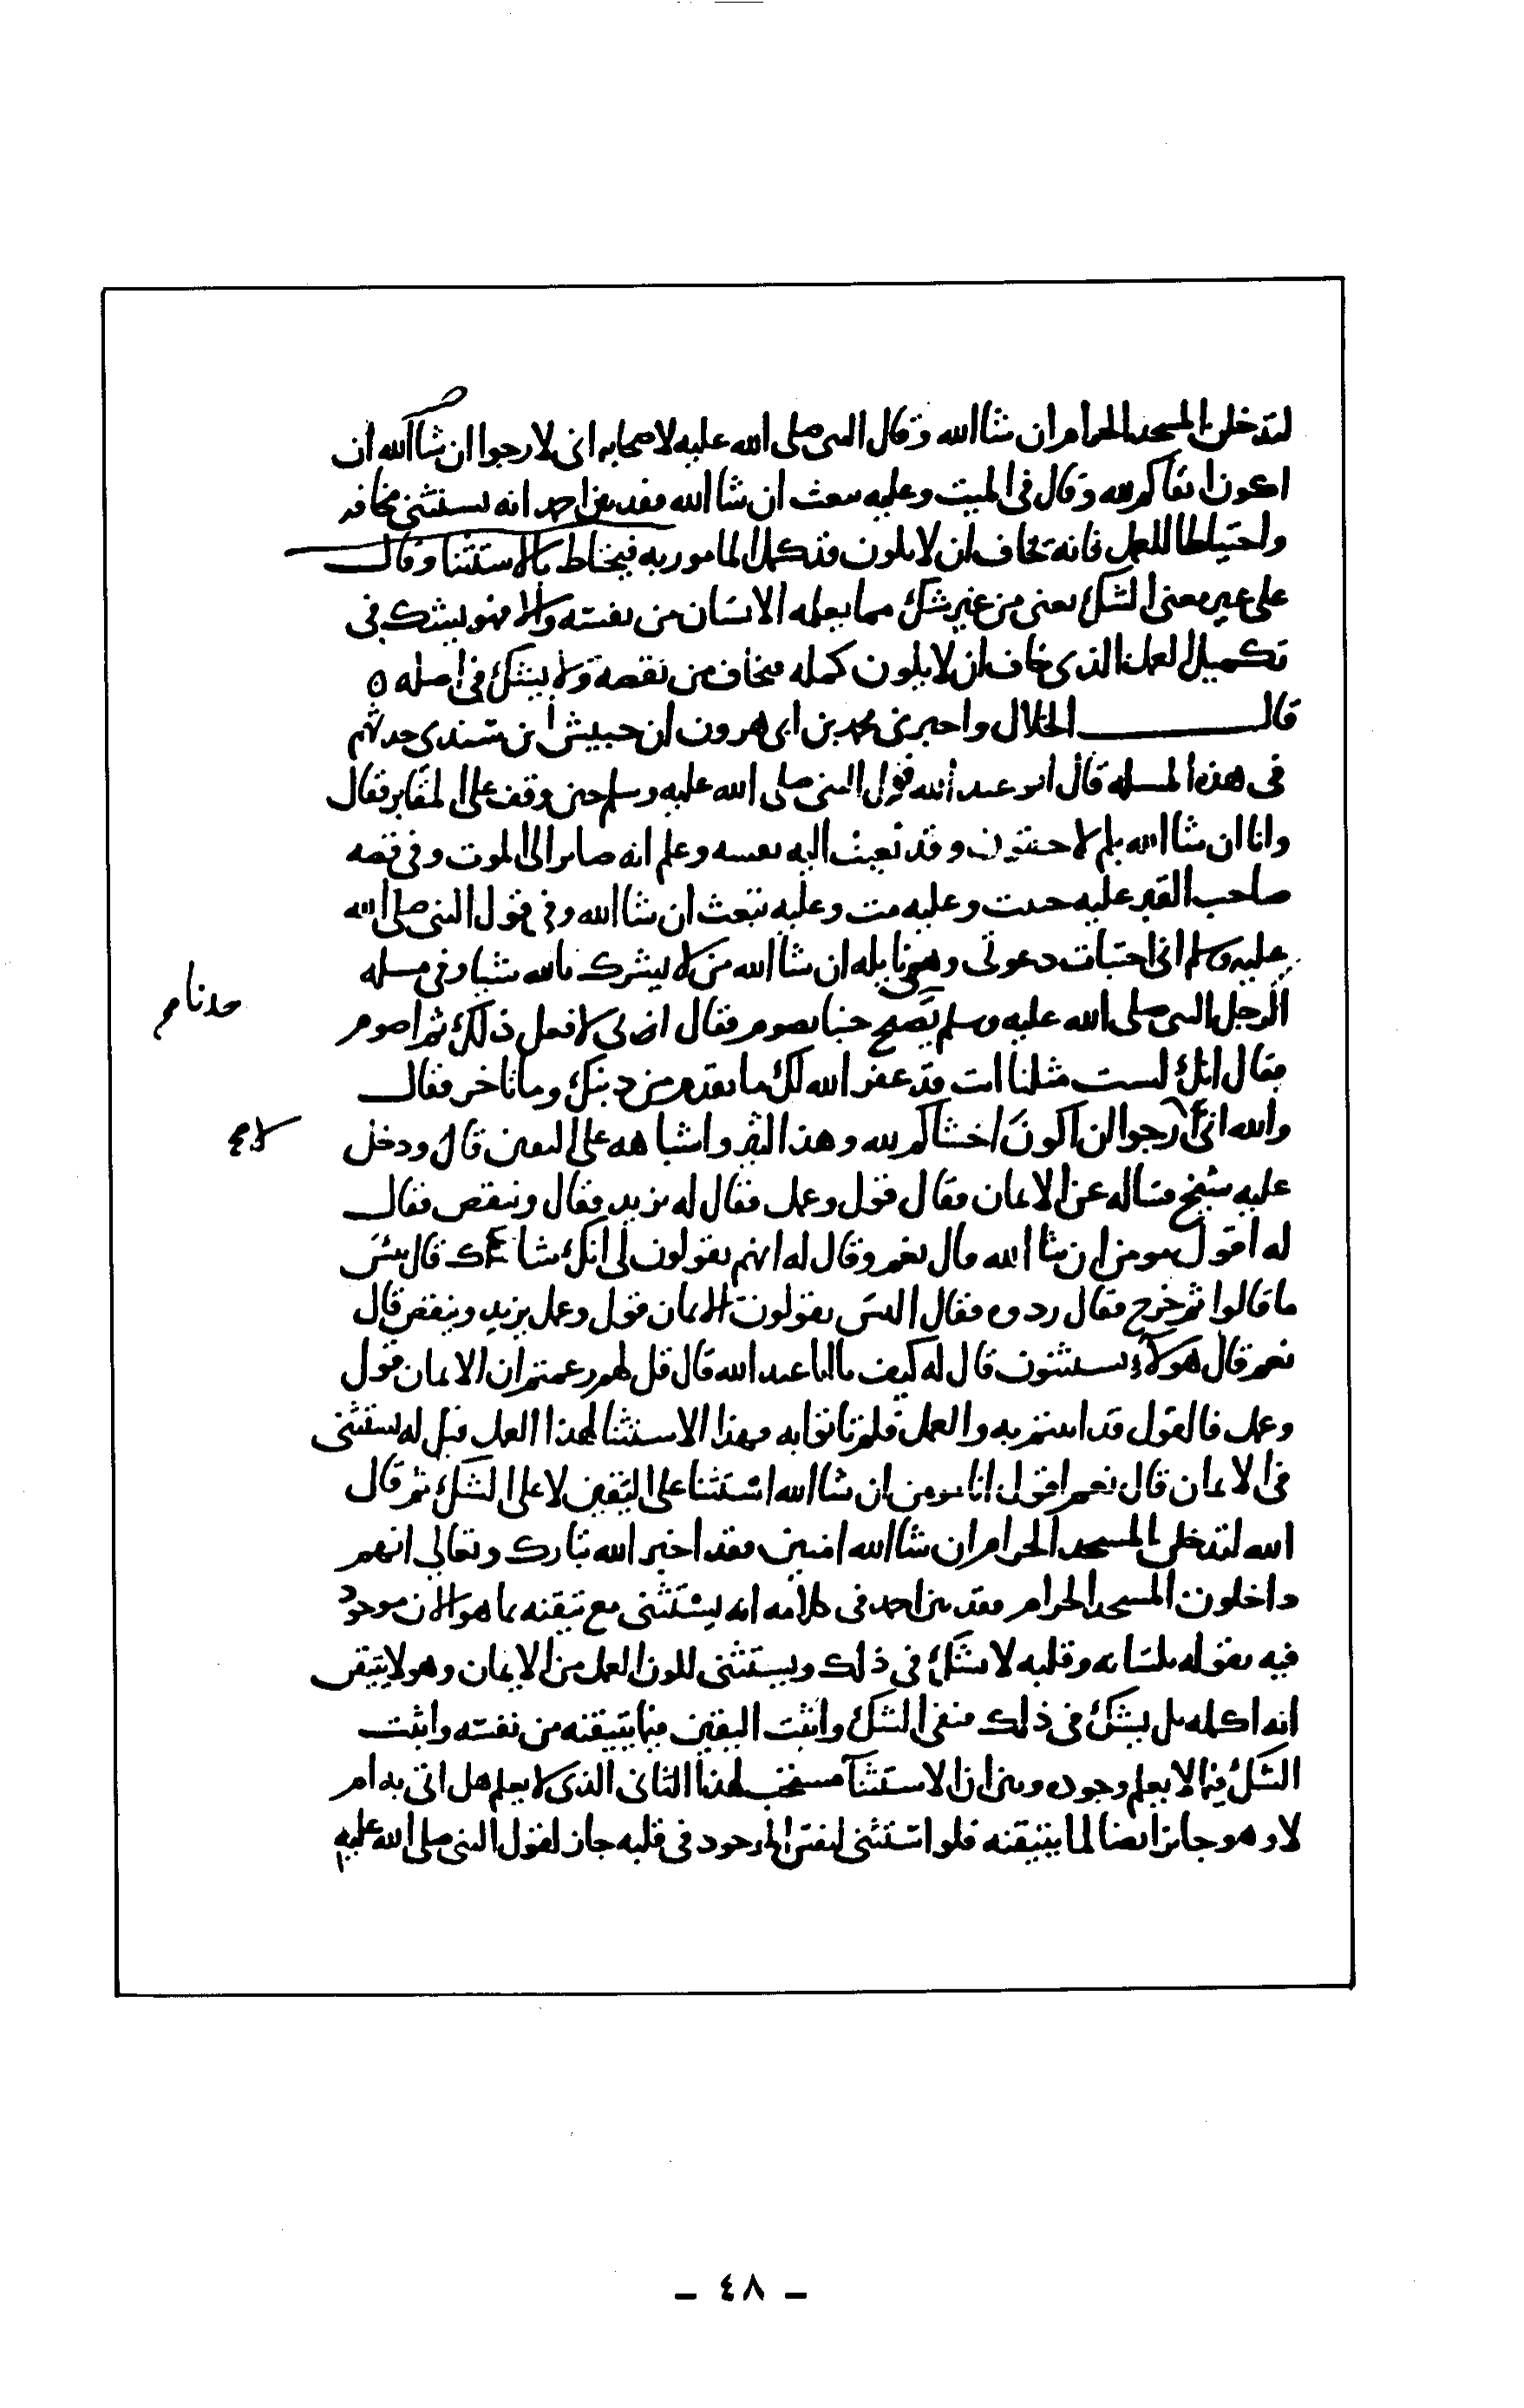 لتدخلن المسجد الحرام ان شاالله وقال النبى صلى الله عليه لاصحابه انى لارجوا ان شاالله ان
اكون اتقاكم لله وقال فى الميت وعليه تبعث ان شاالله فقد بين احمد انه يستثنى مخافه
واحتياطا للعمل فانه يخاف ان لا يكون قد كمل المامور به فيحتاط بالاستثنا وقال
على غير معنى الشك يعنى من غير شك مما يعلمه الانسان من نفسه والا فهو يشك فى
تكميل العمل الذى خاف ان لا يكون كمله فيخاف من نقصه ولا يشك فى اصله ٥
قال الخلال واخبرنى محمد بن ابى هرون ان حبيش ابن سندى حدثهم
فى هذه المسله قال ابو عبد الله قول النبى صلى الله عليه وسلم حين وقف على المقابر فقال
وانا ان شاالله بكم لاحقون وقد نعيت اليه نفسه وعلم انه صاير الى الموت وفى قصه
صاحب القبر عليه حييت وعليه مت وعليه تبعث ان شاالله وفى قول النبى صلى الله
عليه وسلم انى اختبات دعوتى وهى نايله ان شاالله من لا يشرك بالله شيا وفى مسله
الرجل النبى صلى الله عليه وسلم يصبح جنبا يصوم فقال انى لافعل ذلك ثم اصوم
فقال انك لست مثلنا انت قد غفر الله لك ما تقدم من ذنبك وما تاخر فقال
والله انى لارجوا ان اكون اخشاكم لله وهذا كثير واشباهه على اليقين قال ودخل
عليه شيخ فساله عن الايمان فقال قول وعمل فقال له يزيد فقال وينقص فقال
له اقول مومن ان شاالله قال نعم وقال له انهم يقولون لى انك شاك قال بئس
ما قالوا ثم خرج فقال ردوه فقال اليس يقولون الايمان قول وعمل يزيد وينقص قال
نعم قال هولاء يستثنون قال له كيف يا ابا عبد الله قال قل لهم زعمتم ان الايمان قول
وعمل فالقول قد اتيتم به والعمل فلم تاتوا به فهذا الاستثنا لهذا العمل قيل له يستثنى
فى الايمان قال نعم اقول انا مومن ان شاالله استثنا على اليقين لا على الشك ثم قال
الله لتدخلن المسجد الحرام ان شاالله امنين فقد اخبر الله تبارك وتعالى انهم
داخلون المسجد الحرام فقد بين احمد فى كلامه انه يستثنى مع تيقنه بما هو الان موجود
فيه يقوله بلسانه وقلبه لا يشك فى ذلك ويستثنى لكون العمل من الايمان وهو لا يتيقن
انه اكمله بل يشك فى ذلك فنفى الشك واثبت اليقين فيما يتيقنه من نفسه واثبت
الشك فيما لا يعلم وجوده وبين ان الاستثنآ مستحب لهذا الثانى الذى لا يعلم هل اتى به ام
لا وهو جايز ايضا لما يتيقنه فلو استثنى لنفس الموجود فى قلبه جاز لقول النبى صلى الله عليه
- ٤٨ -